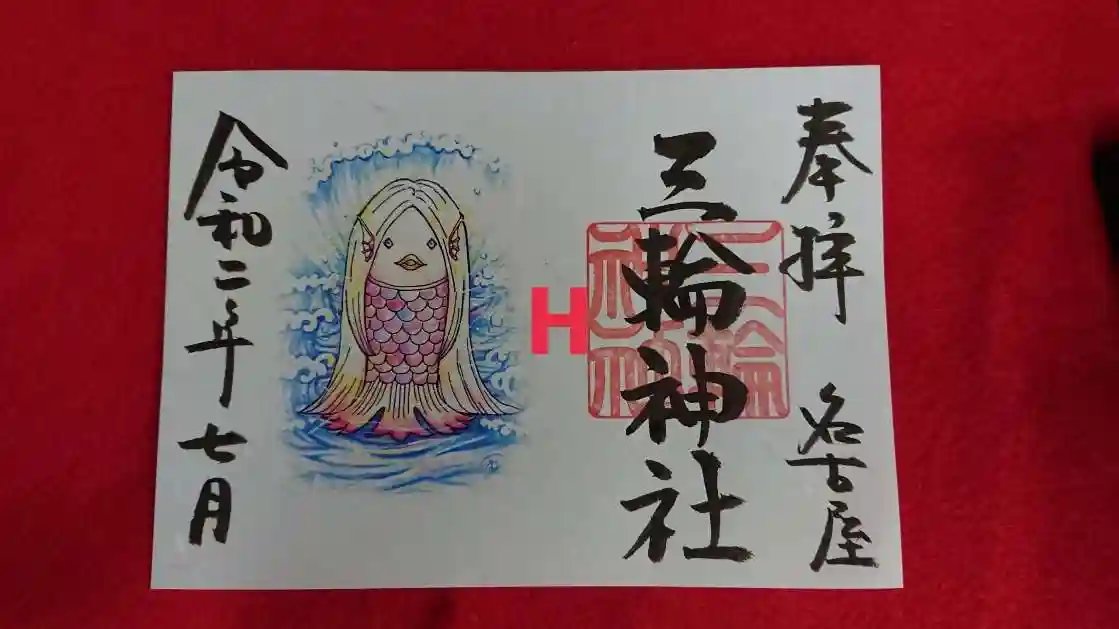 奉拝 名古屋
三輪神社
三輪神社
H
令和二年 七月